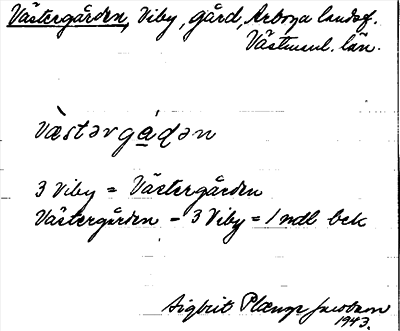 Västergården, Viby, gård, Arboga landsf.
Västmanl. län.
västərgá̱dən
3 Viby = Västergården
Västergården = 3 Viby = 1 mtl bek
Sigbrit Plænge Jacobson
1943.